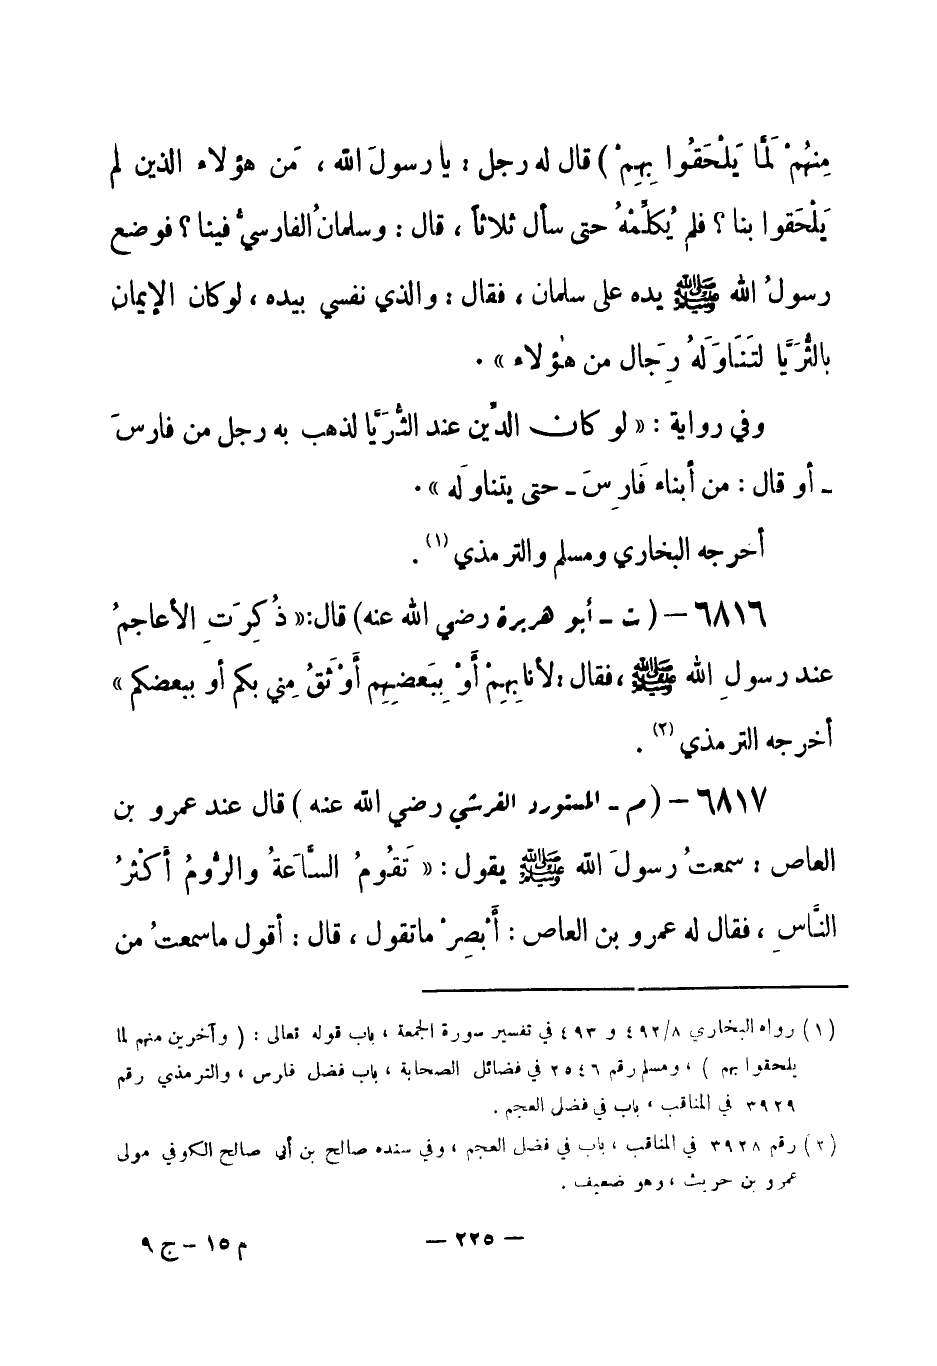 مِنهُمْ لَمَّا يَلْحَقُوا بِهِمْ ) قال له رجل : يا رسولَ الله ، مَن هؤلاء الذين لم
يَلْحَقوا بنا ؟ فلم يُكلِّمْهُ حتى سأل ثلاثاً ، قال : وسلمانُ الفارسيُّ فينا ؟ فوضع
رسولُ الله ﷺ يده على سلمان ، فقال : والذي نفسي بيده ، لو كان الإيمان
بالثُّرَيَّا لتَنَاوَلَهُ رِجَال من هٰؤلاء » .
وفي رواية : « لو كان الدِّين عند الثُّرَيَّا لذهب به رجل من فارسَ
ـ أو قال : من أبناء فَارِسَ ـ حتى يتناوَله » .
أخرجه البخاري ومسلم والترمذي (١) .
٦٨١٦ – ( ت ـ أبو هريرة رضي الله عنه ) قال : « ذُكِرَتِ الأعاجمُ
عند رسولِ الله ﷺ ، فقال : لأنا بِهِمْ أَوْ بِبَعضِهِم أَوْثَقُ مِني بكم أو ببعضكم »
أخرجه الترمذي (٢) .
٦٨١٧ – ( م ـ المستورد القرشي رضي الله عنه ) قال عند عمرو بن
العاص : سمعتُ رسولَ الله ﷺ يقول : « تَقُومُ السَّاعَةُ والرُّومُ أَكْثَرُ
النَّاسِ ، فقال له عمرو بن العاص : أَبْصِرْ ما تقول ، قال : أقول ما سمعتُ من
(١) رواه البخاري ٤٩٢/٨ و ٤٩٣ في تفسير سورة الجمعة ، باب قوله تعالى : ( وآخرين منهم لما
يلحقوا بهم ) ، ومسلم رقم ٢٥٤٦ في فضائل الصحابة ، باب فضل فارس ، والترمذي رقم
٣٩٢٩ في المناقب ، باب في فضل العجم .
(٢) رقم ٣٩٢٨ في المناقب ، باب في فضل العجم ، وفي سنده صالح بن أبي صالح الكوفي مولى
عمرو بن حريث ، وهو ضعيف .
– ٢٢٥ –
م ١٥ – ج ٩